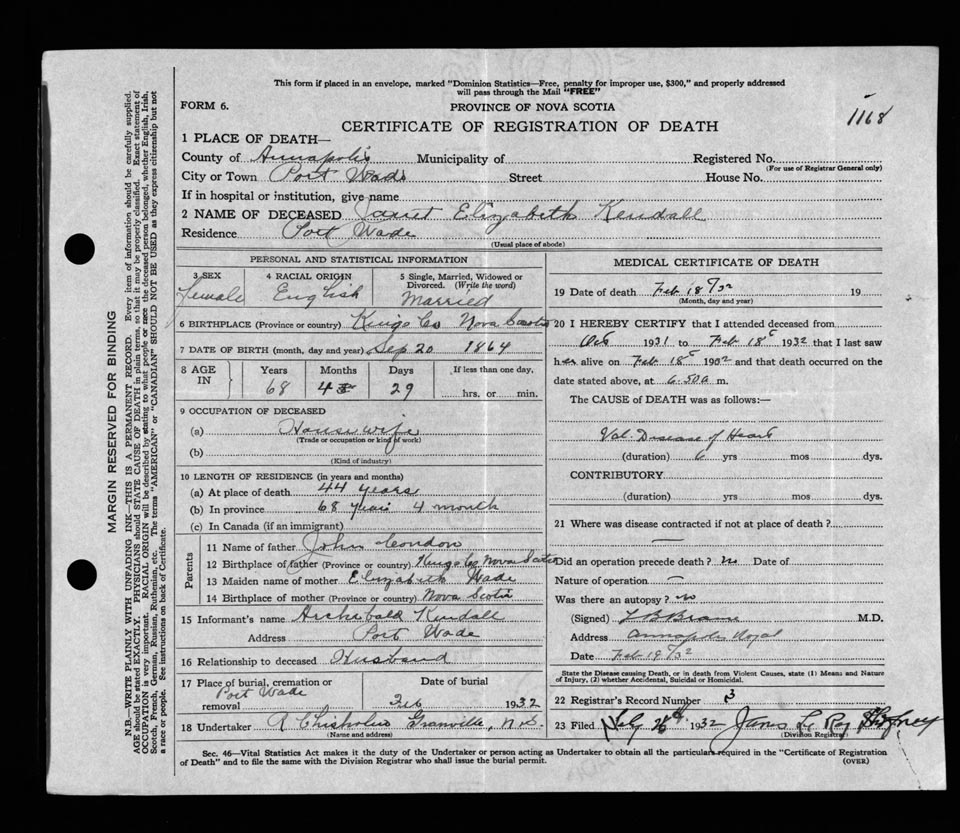 This form if placed in an envelope, marked "Dominion Statistics—Free, penalty for improper use, $300," and properly addressed
will pass through the Mail "FREE"
FORM 6.
PROVINCE OF NOVA SCOTIA
1168
CERTIFICATE OF REGISTRATION OF DEATH
1 PLACE OF DEATH—
County of Annapolis Municipality of Registered No.
(For use of Registrar General only)
City or Town Port Wade Street House No.
If in hospital or institution, give name
2 NAME OF DECEASED Janet Elizabeth Kendall
Residence Port Wade
(Usual place of abode)
PERSONAL AND STATISTICAL INFORMATION
3 SEX 4 RACIAL ORIGIN 5 Single, Married, Widowed or
Divorced. (Write the word)
Female English Married
6 BIRTHPLACE (Province or country) Kings Co Nova Scotia
7 DATE OF BIRTH (month, day and year) Sep 20 1864
8 AGE IN Years Months Days If less than one day,
68 4 29 hrs. or min.
9 OCCUPATION OF DECEASED
(a) House wife
(Trade or occupation or kind of work)
(b)
(Kind of industry)
10 LENGTH OF RESIDENCE (in years and months)
(a) At place of death 44 years
(b) In province 68 years 4 month
(c) In Canada (if an immigrant)
Parents
11 Name of father John Condon
12 Birthplace of father (Province or country) Kings Co Nova Scotia
13 Maiden name of mother Elizabeth Wade
14 Birthplace of mother (Province or country) Nova Scotia
15 Informant's name Archebald Kendall
Address Port Wade
16 Relationship to deceased Husband
17 Place of burial, cremation or Date of burial
removal Port Wade 1932
18 Undertaker R Chisholm Granville, N.S.
(Name and address)
MEDICAL CERTIFICATE OF DEATH
19 Date of death Feb 18/32 19
(Month, day and year)
20 I HEREBY CERTIFY that I attended deceased from
Oct 1931 to Feb 18 1932 that I last saw
her alive on Feb 18 1932 and that death occurred on the
date stated above, at 6.50 a m.
The CAUSE of DEATH was as follows:—
Val. Disease of Heart
(duration) 6 yrs mos dys.
CONTRIBUTORY
(duration) yrs mos dys.
21 Where was disease contracted if not at place of death?
—
Did an operation precede death? no Date of
Nature of operation —
Was there an autopsy? no
(Signed) M.D.
Address Annapolis Royal
Date Feb 19/32
State the Disease causing Death, or in death from Violent Causes, state (1) Means and Nature
of Injury, (2) whether Accidental, Suicidal or Homicidal.
22 Registrar's Record Number 3
23 Filed 1932 James Le Roy
(Division Registrar)
Sec. 46—Vital Statistics Act makes it the duty of the Undertaker or person acting as Undertaker to obtain all the particulars required in the "Certificate of Registration
of Death" and to file the same with the Division Registrar who shall issue the burial permit.
(OVER)
MARGIN RESERVED FOR BINDING
N.B.—WRITE PLAINLY WITH UNFADING INK—THIS IS A PERMANENT RECORD. Every item of information should be carefully supplied.
AGE should be stated EXACTLY. PHYSICIANS should STATE CAUSE OF DEATH in plain terms, so that it may be properly classified. Exact statement of
OCCUPATION is very important. RACIAL ORIGIN will be described by stating to what people or race the deceased person belonged, whether English, Irish,
Scotch, French, German, Russian, Ruthenian, etc. The terms "AMERICAN" or "CANADIAN" SHOULD NOT BE USED as they express citizenship but not
a race or people. See instructions on back of Certificate.